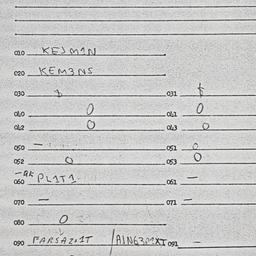 010 KEJM1N
020 KEM3NS
030 $ 031 $
040 0 041 0
042 0 043 0
050 - 051 0
052 0 053 0
060 PL1T1 061 -
070 - 071 -
080 0
090 091 -